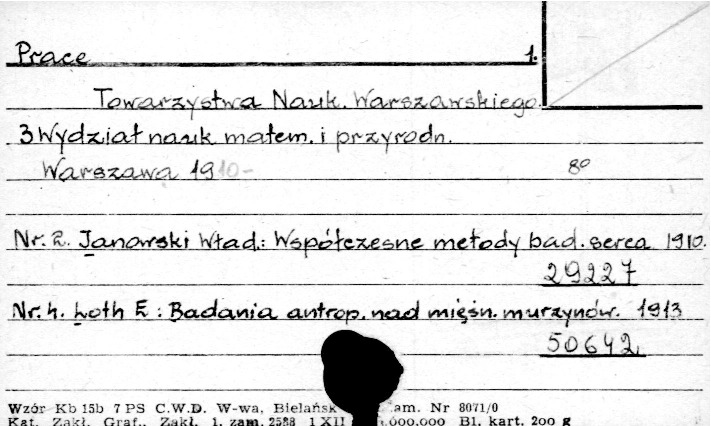 Prace 1.
Towarzystwa Nauk. Warszawskiego.
3 Wydział nauk matem. i przyrodn.
Warszawa 1910- 8º
Nr. 2. Janowski Wład.: Współczesne metody bad. serca 1910.
29227
Nr. 4. Loth E: Badania antrop. nad mięśn. murzynów. 1913
50642
Wzór Kb 15b 7 PS C.W.D. W-wa, Bielańsk am. Nr 8071/0
Kat. Zakł. Graf., Zakł. 1. zam. 2588 1 XII .000.000 Bl. kart. 200 g